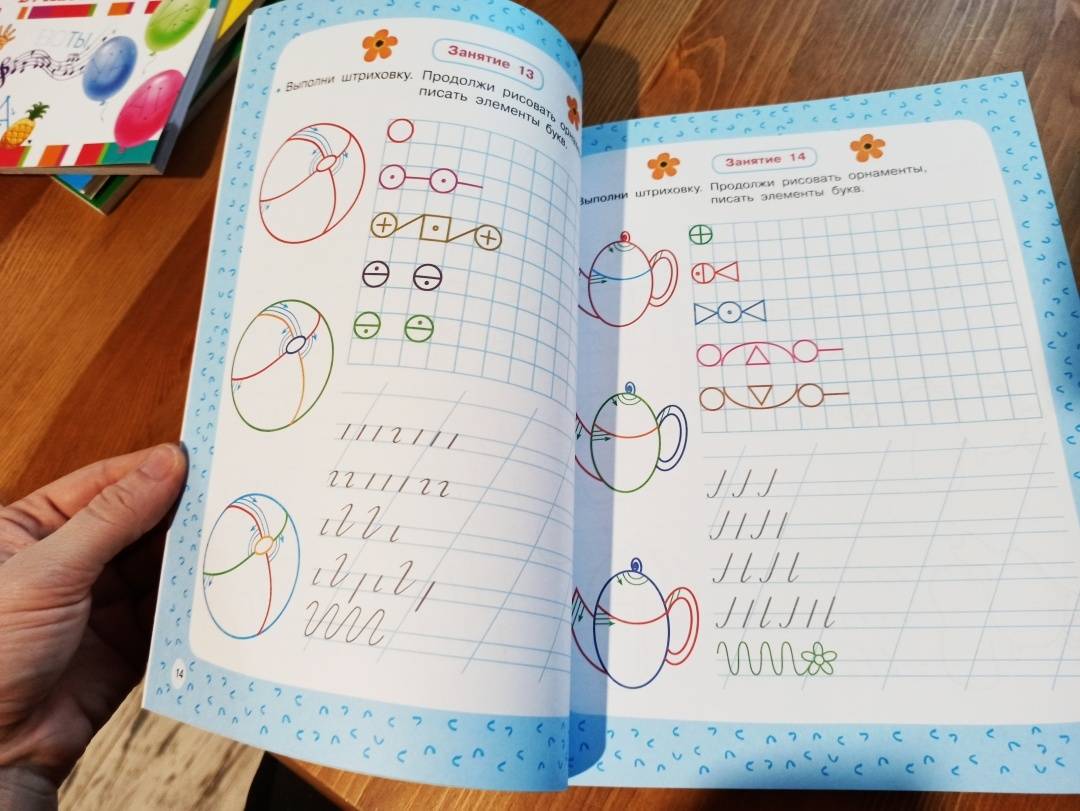 Занятие 13
Выполни штриховку. Продолжи рисовать
писать элементы букв.
14
Занятие 14
Выполни штриховку. Продолжи рисовать орнаменты,
писать элементы букв.